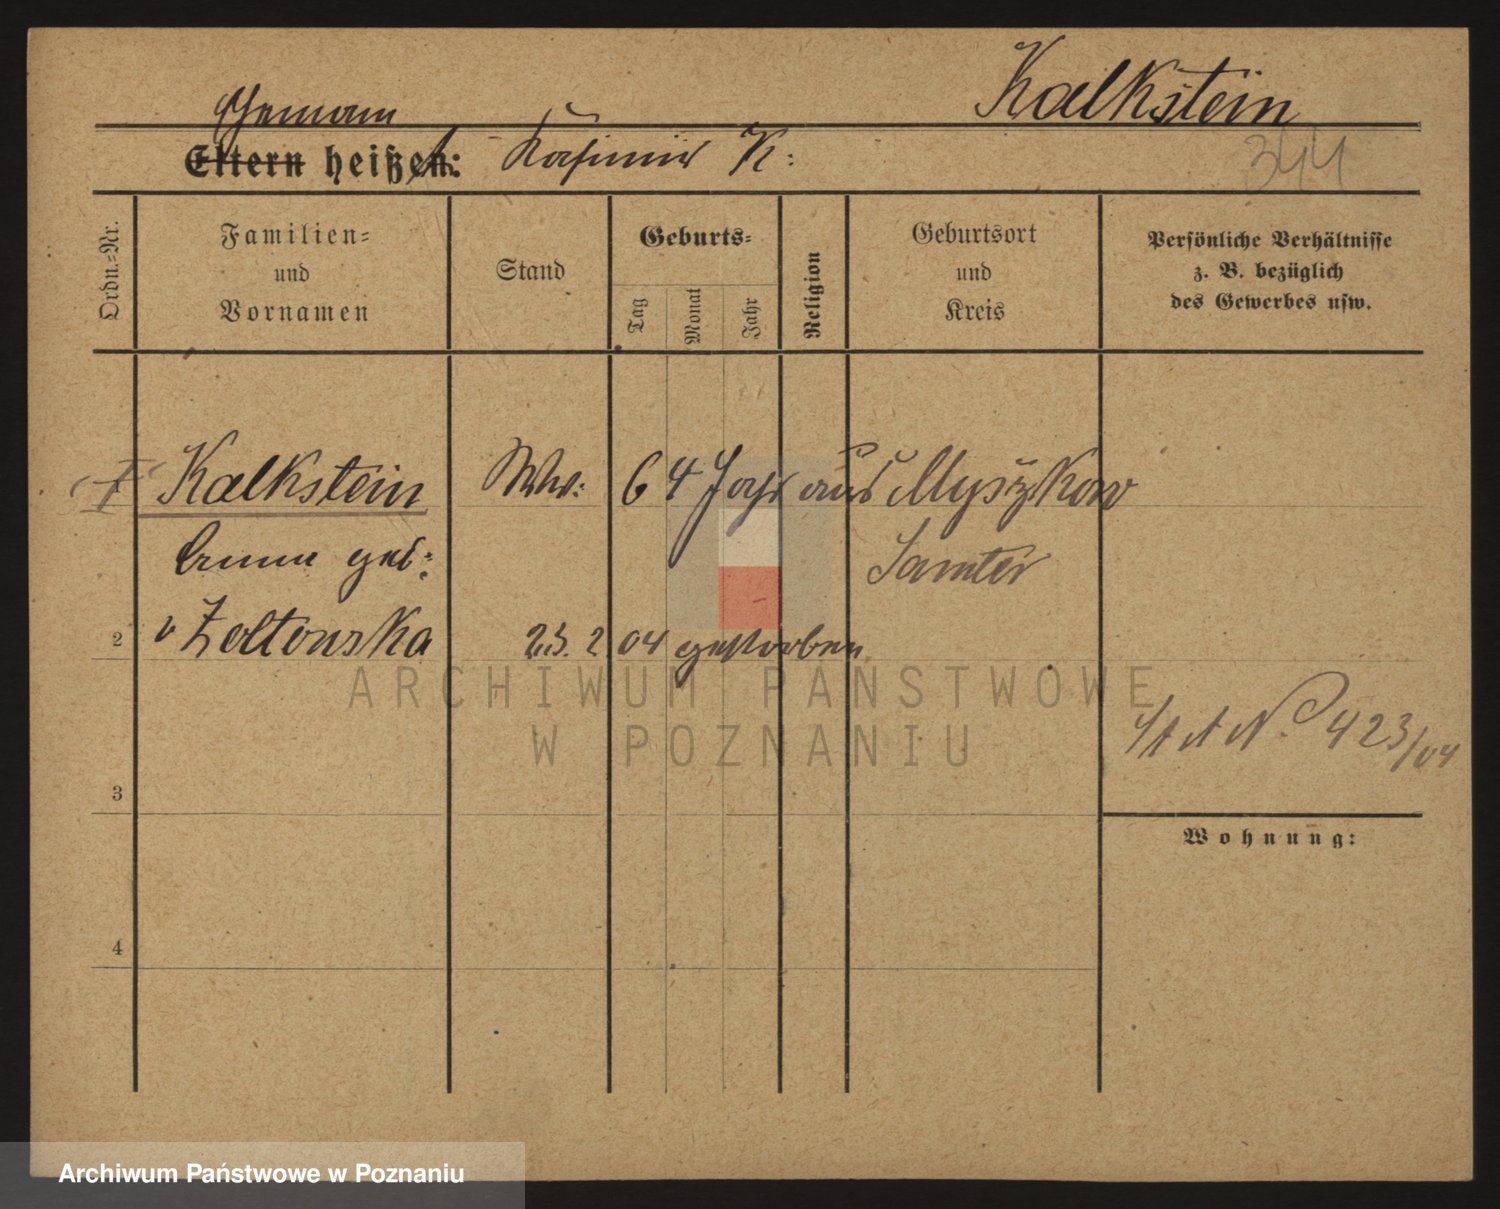 Kalkstein
Ehemann
Eltern heißen: Kasimir K:
344
Ordn.-Nr.
Familien-
und
Vornamen
Stand
Geburts-
Tag
Monat
Jahr
Religion
Geburtsort
und
Kreis
Persönliche Verhältnisse
z. B. bezüglich
des Gewerbes usw.
Kalkstein Ww: 64 Jahr aus Myszkow
geb: Samter
2 v Zoltonska 23. 2 04 gestorben
ARCHIWUM PAŃSTWOWE
W POZNANIU
St A N. 423/04
3
Wohnung:
4
Archiwum Państwowe w Poznaniu